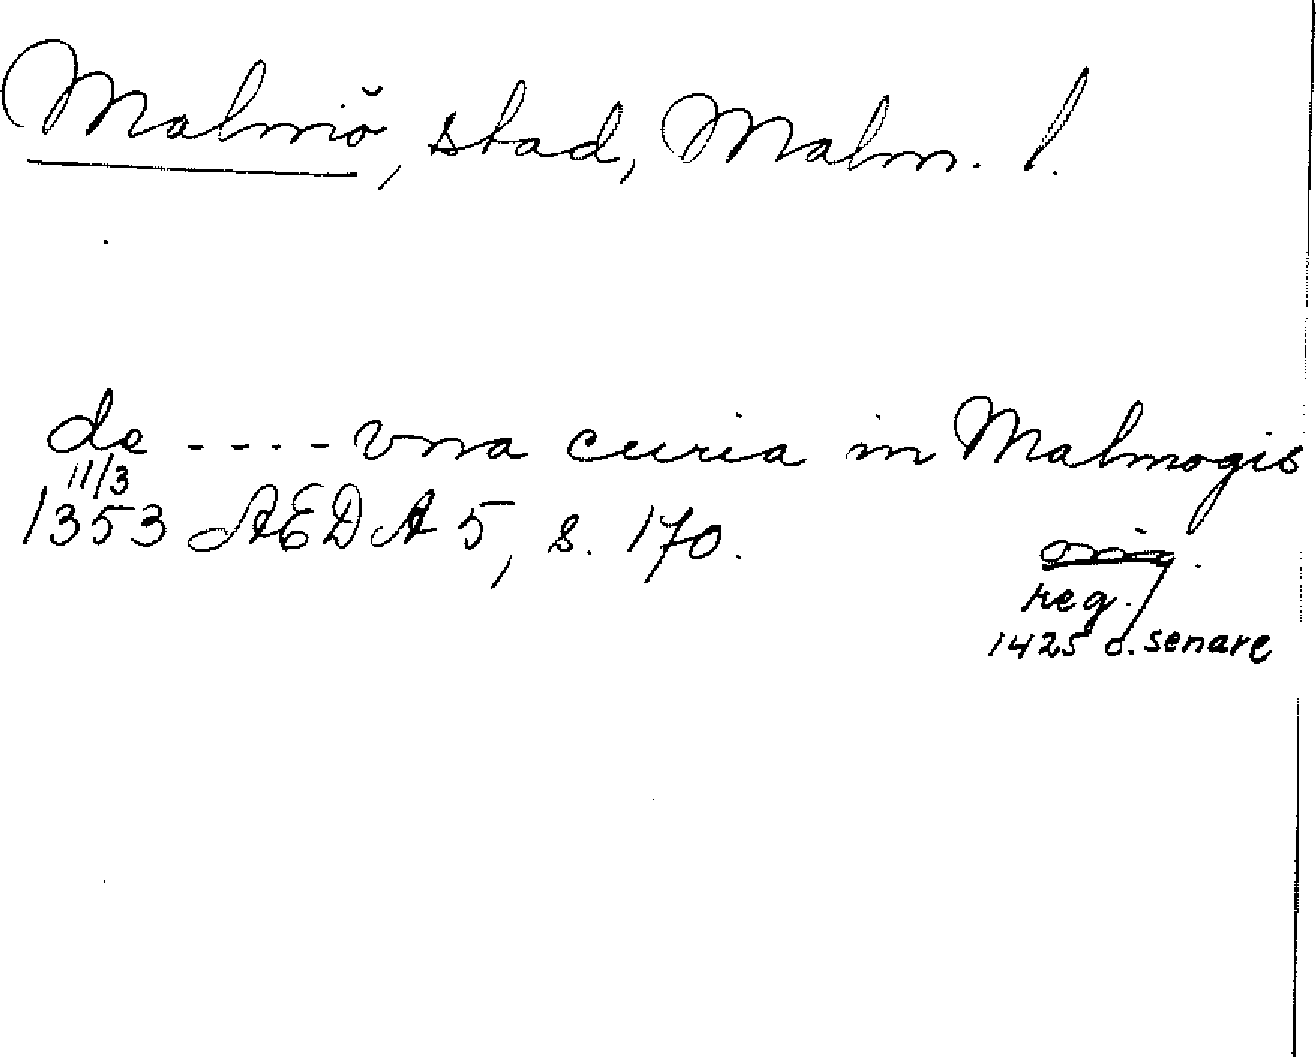 Malmö, stad, Malm. l.
de ---- vna curia in Malmogis
11/3
1353 AEDA 5, s. 170.
orig.
reg.
1425 o. senare